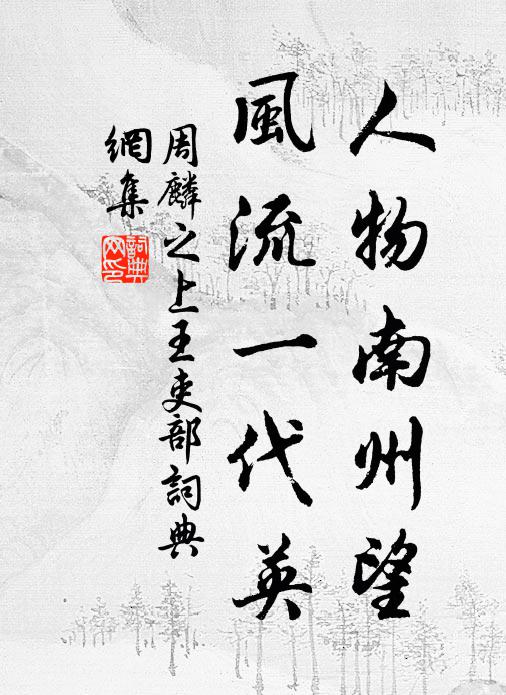 人物南州望
風流一代英
周麟之上王吏部詞典
網集
詞典网印